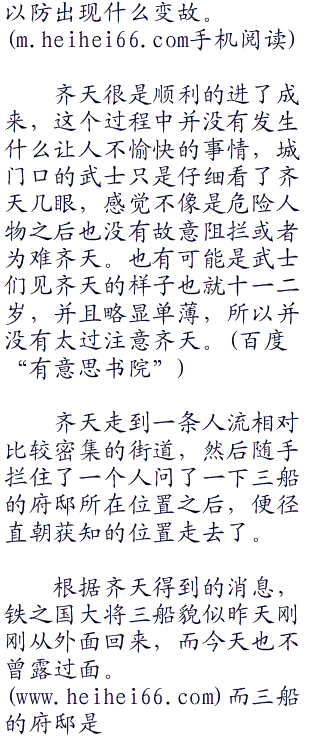 以防出现什么变故。
(m.heihei66.com手机阅读)
齐天很是顺利的进了成
来，这个过程中并没有发生
什么让人不愉快的事情，城
门口的武士只是仔细看了齐
天几眼，感觉不像是危险人
物之后也没有故意阻拦或者
为难齐天。也有可能是武士
们见齐天的样子也就十一二
岁，并且略显单薄，所以并
没有太过注意齐天。(百度
“有意思书院”)
齐天走到一条人流相对
比较密集的街道，然后随手
拦住了一个人问了一下三船
的府邸所在位置之后，便径
直朝获知的位置走去了。
根据齐天得到的消息，
铁之国大将三船貌似昨天刚
刚从外面回来，而今天也不
曾露过面。
(www.heihei66.com)而三船
的府邸是